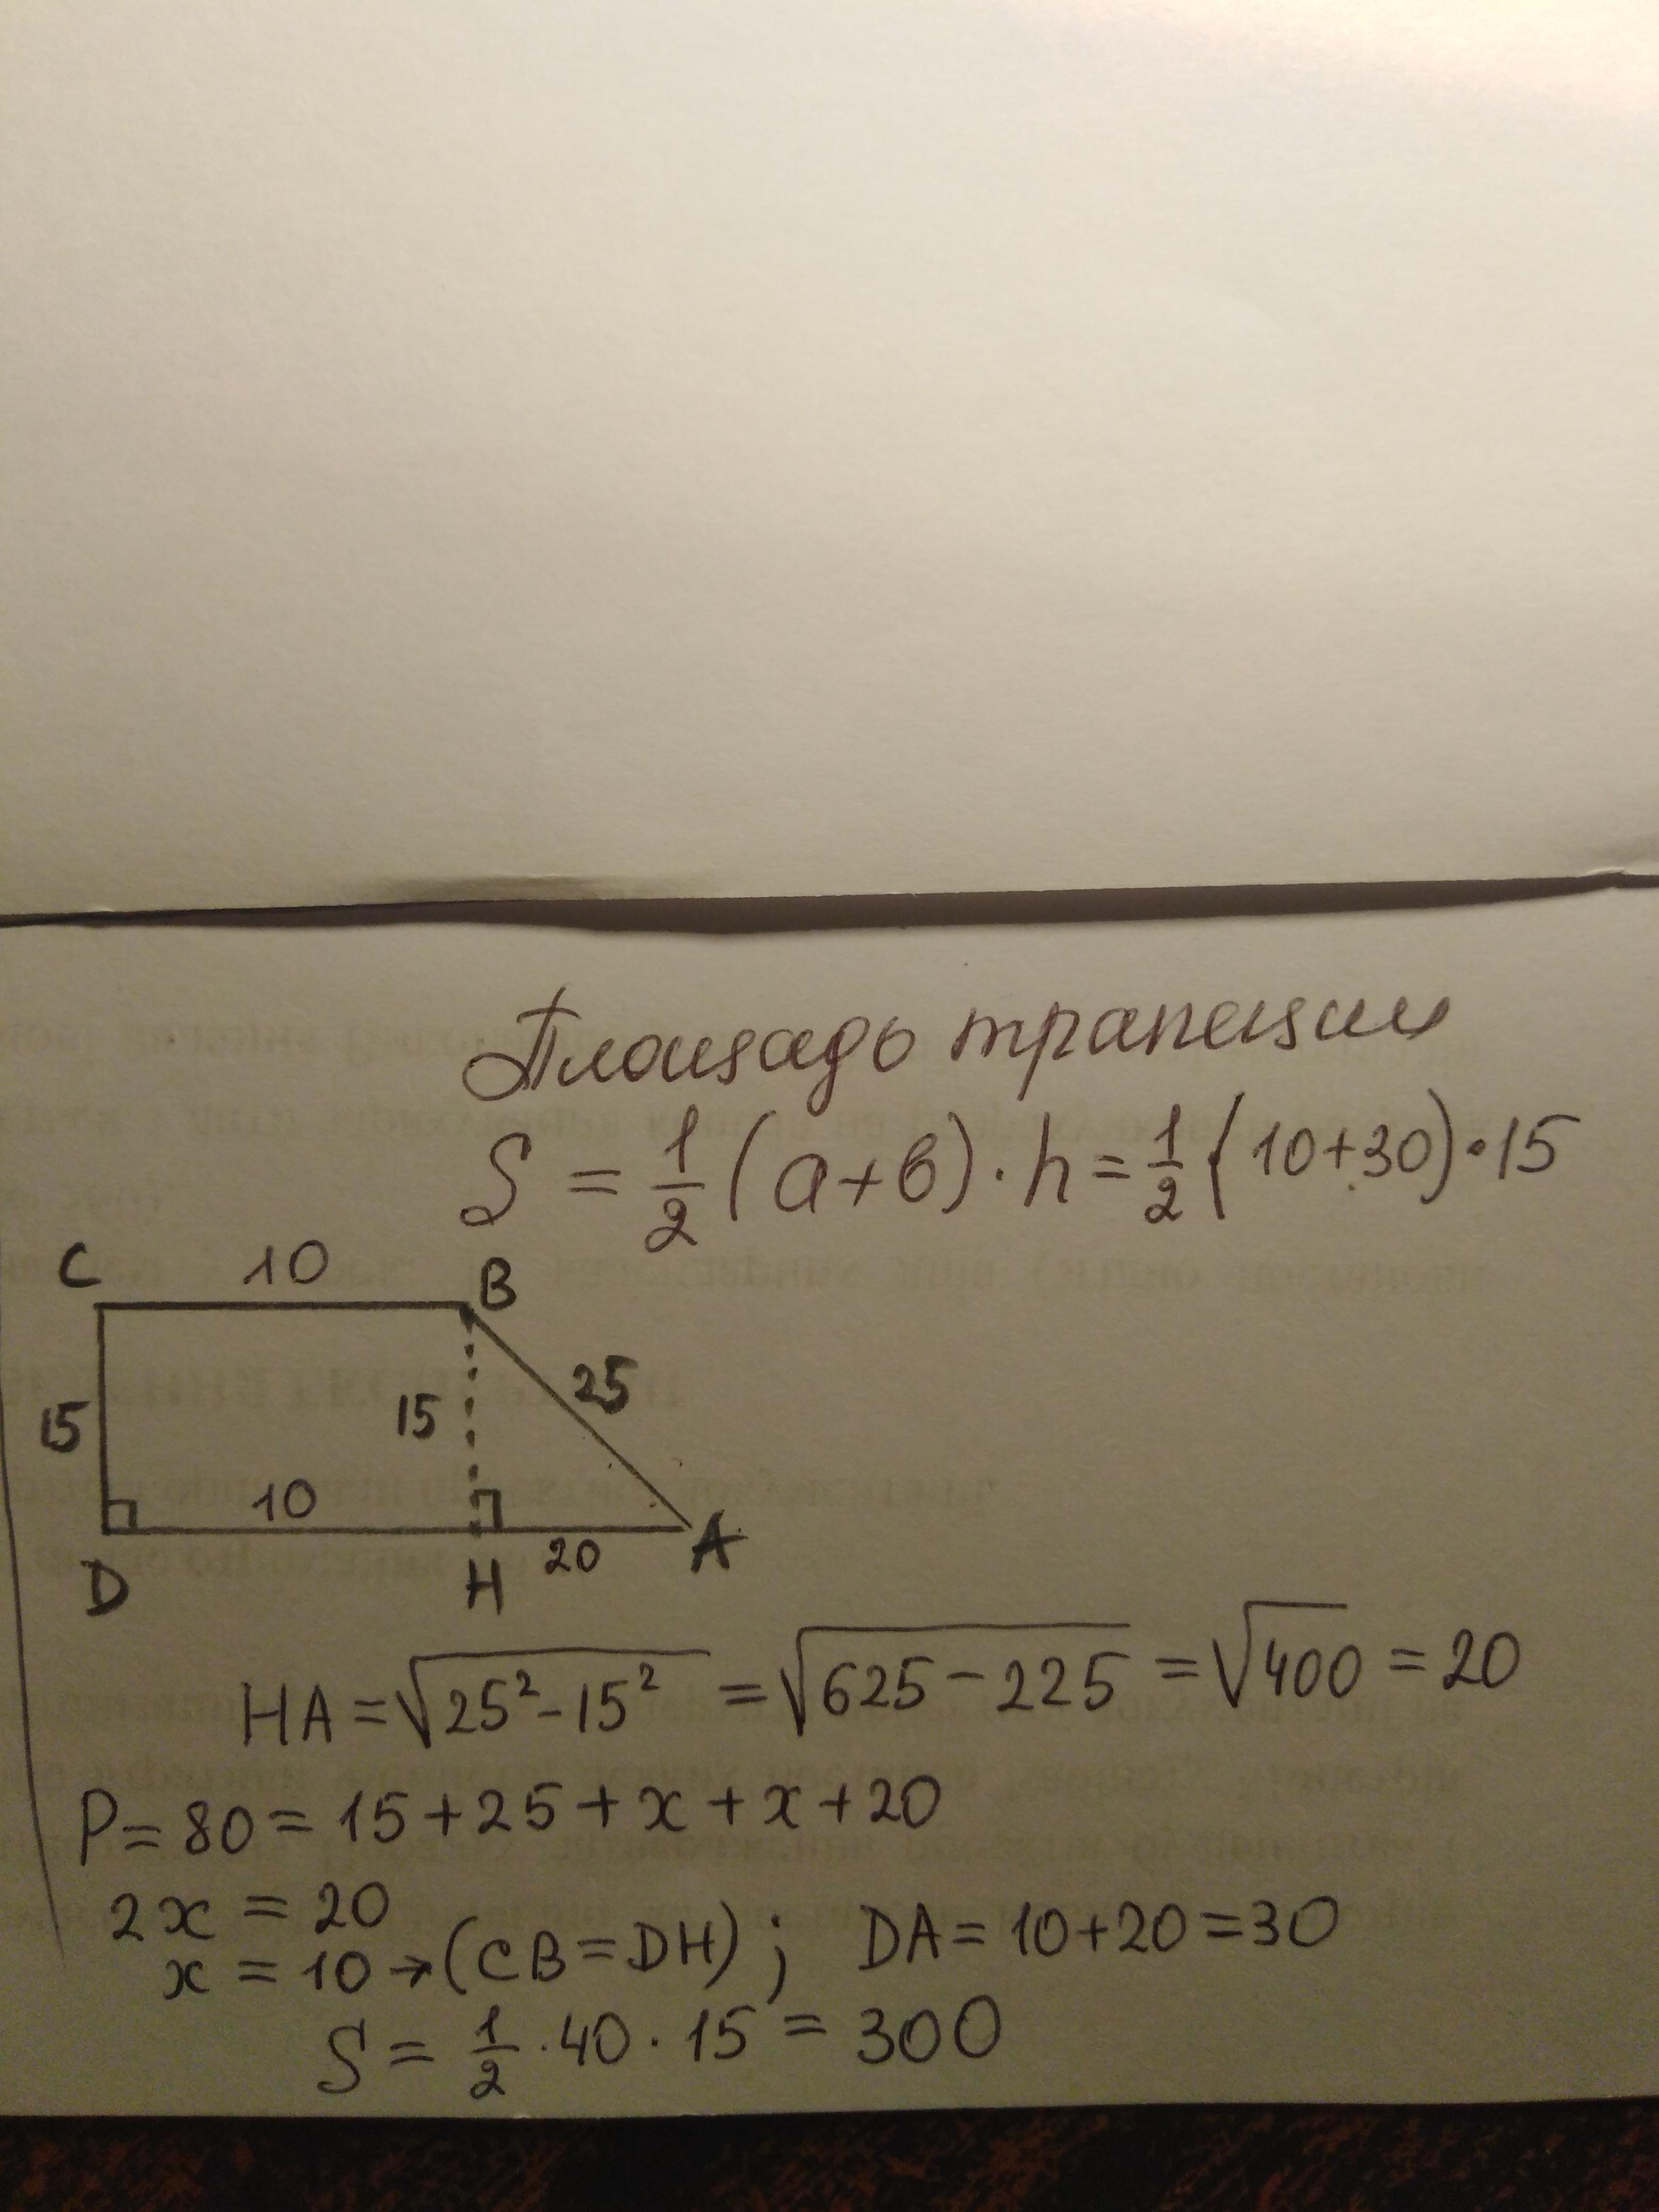 Площадь трапеции
S = 1/2 (a+в)·h = 1/2 (10+30)·15
C 10 B
15 15 25
10
D H 20 A
HA = √25²-15² = √625-225 = √400 = 20
P = 80 = 15+25+x+x+20
2x = 20
x = 10 → (CB=DH); DA = 10+20 = 30
S = 1/2 · 40 · 15 = 300